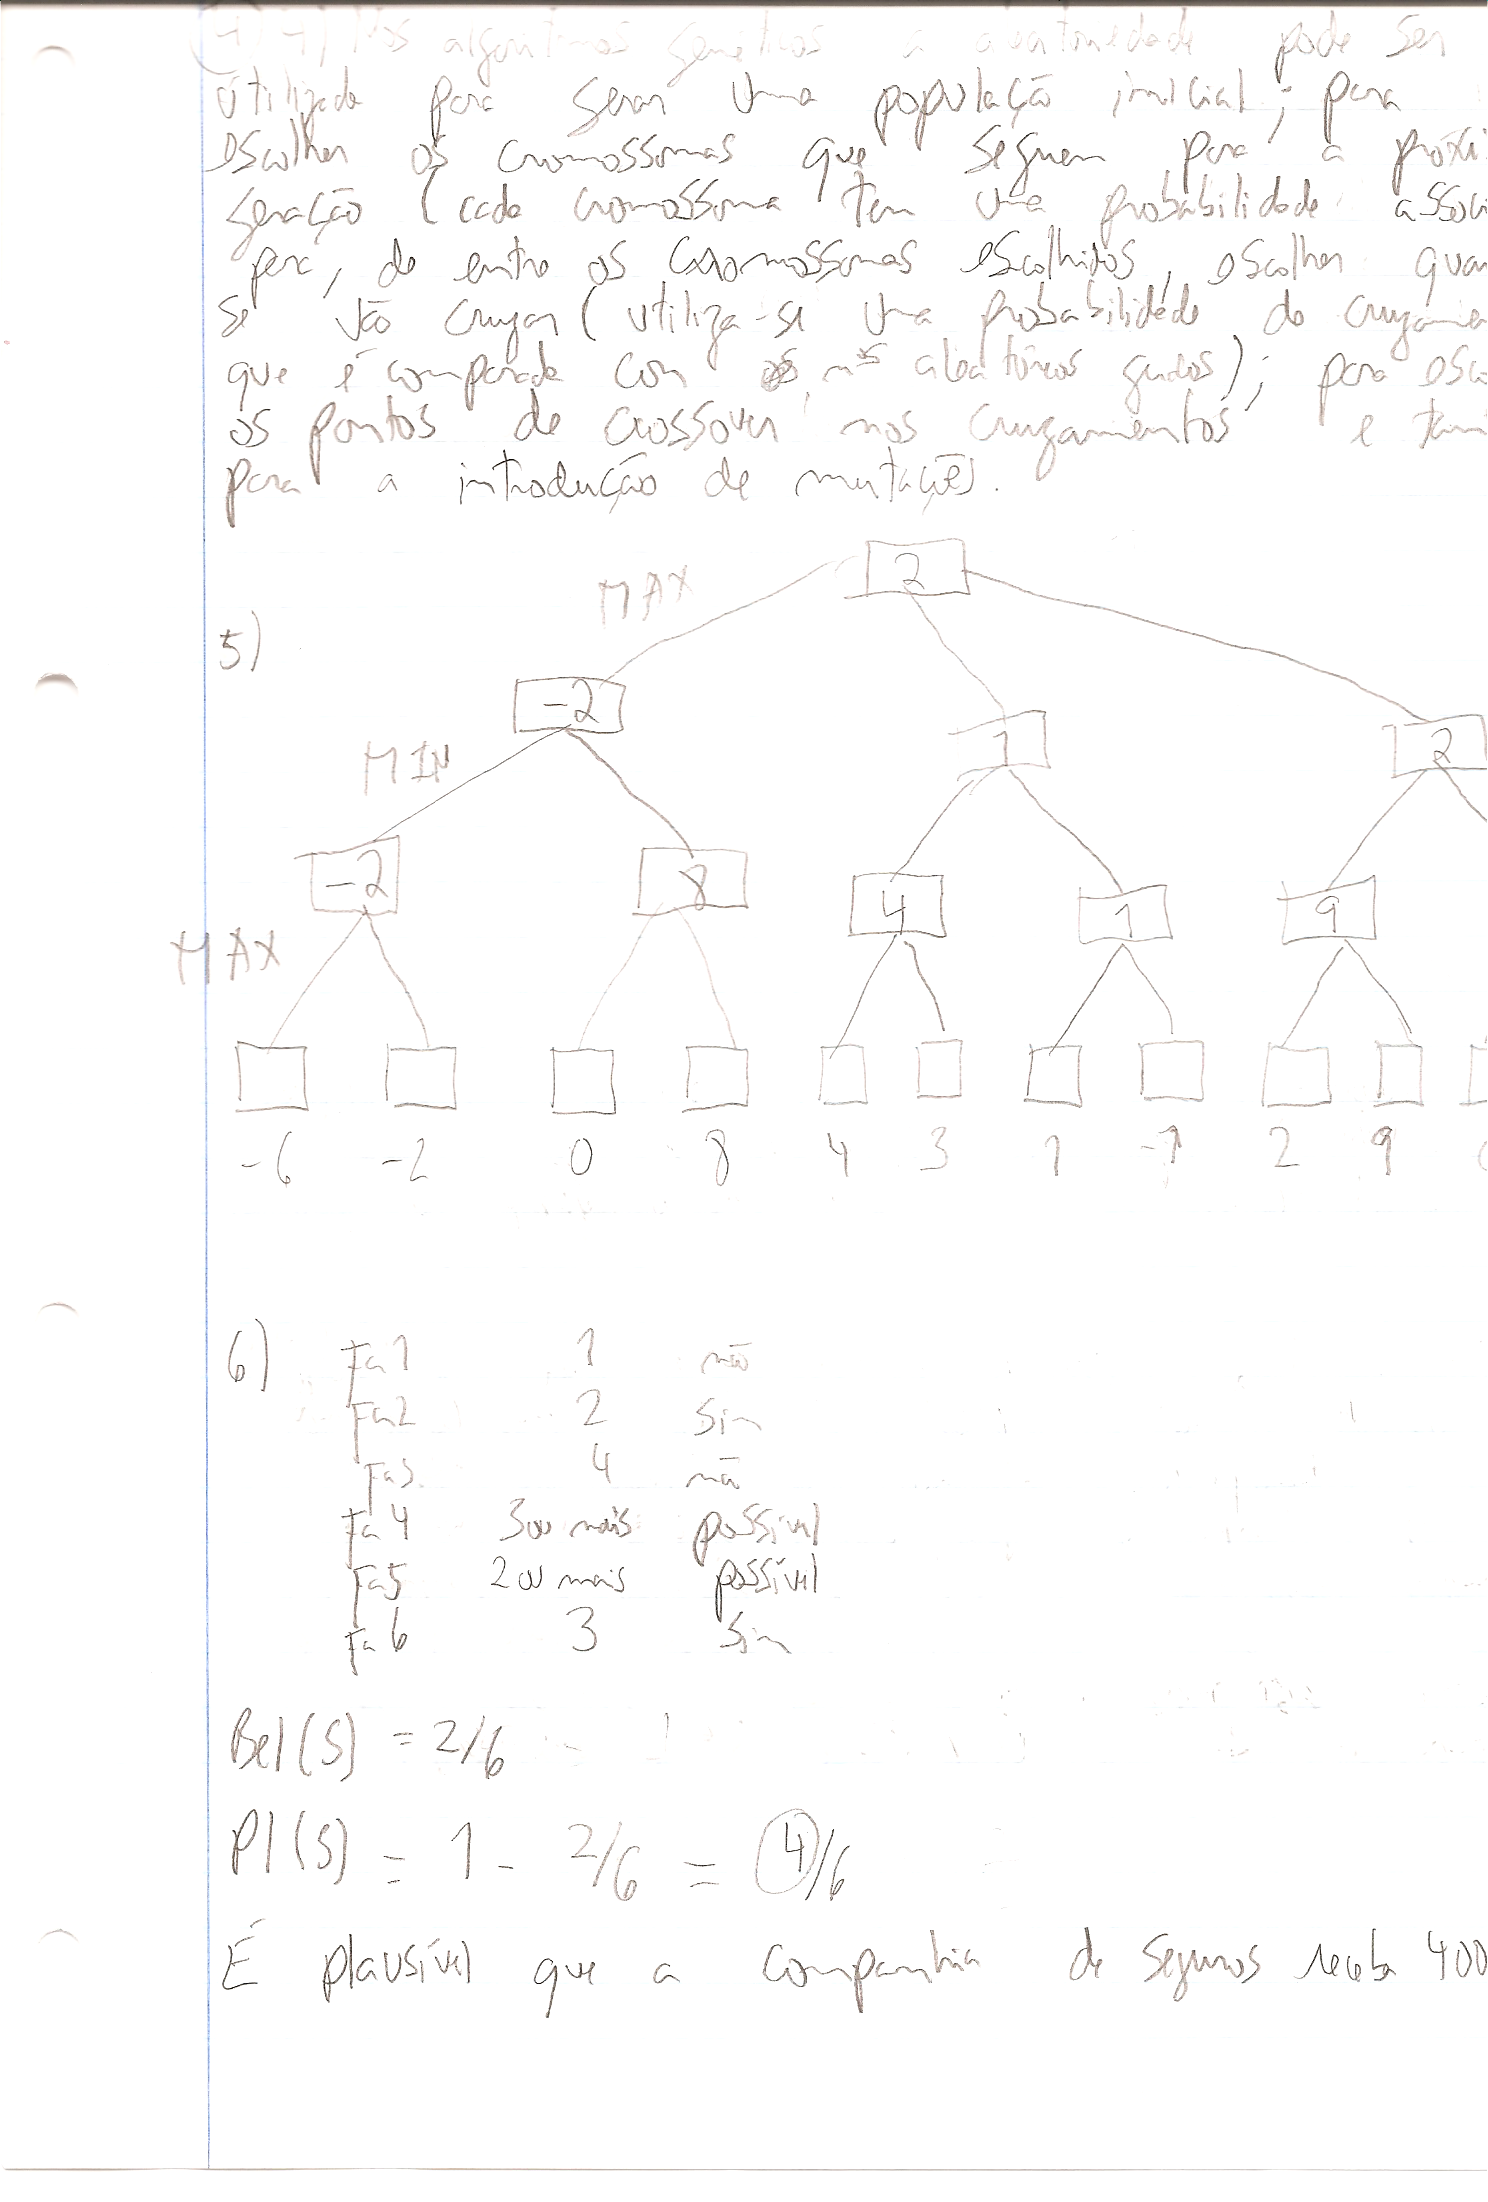 algoritmos genéticos a aleatoriedade pode ser
utilizada para gerar uma população inicial; para
escolher os cromossomas que seguem para a próxi
geração (cada cromossoma tem uma probabilidade associ
para, de entre os cromossomas escolhidos, escolher quai
se vão cruzar (utiliza-se uma probabilidade de cruzame
que é comparada com nºs aleatórios gerados); para esco
os pontos de crossover nos cruzamentos e tam
para a introdução de mutações.
MAX 2
5)
-2 1 2
MIN
-2 8 4 1 9
MAX
-6 -2 0 8 4 3 1 -1 2 9
6) Fa1 1 não
Fa2 2 sim
Fa3 4 não
Fa4 3 ou mais possível
Fa5 2 ou mais possível
Fa6 3 sim
Bel(S) = 2/6
Pl(S) = 1 - 2/6 = 4/6
É plausível que a companhia de seguros receba 400